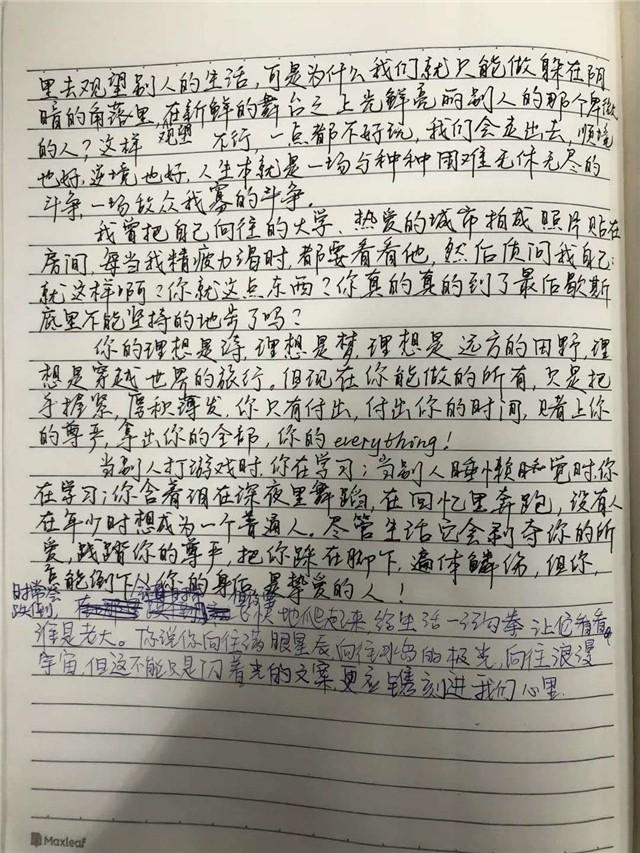 里去观望别人的生活，可是为什么我们就只能做躲在阴
暗的角落里，在新鲜的舞台之上光鲜亮丽别人的那个卑微
的人？这样 观望 不行，一点都不好玩，我们会走出去，顺境
也好，逆境也好，人生本就是一场与种种困难无休无尽的
斗争，一场敌众我寡的斗争。
我曾把自己向往的大学、热爱的城市拍成照片贴在
房间，每当我精疲力竭时，都要看看他，然后质问我自己：
就这样啊？你就这点东西？你真的真的到了最后歇斯
底里不能坚持的地步了吗？
你的理想是诗，理想是梦，理想是远方的田野，理
想是穿越世界的旅行。但现在你能做的所有，只是把
手握紧，厚积薄发，你只有付出，付出你的时间，赌上你
的尊严，拿出你的全部，你的everything！
当别人打游戏时，你在学习；当别人睡懒觉时，你
在学习；你含着泪在深夜里舞蹈，在回忆里奔跑，没有人
在年少时想成为一个普通人。尽管生活它会剥夺你的所
爱，践踏你的尊严，把你踩在脚下，遍体鳞伤，但你，
怎能倒下！你的身后是挚爱的人！
时常会
跌倒，地爬起来给生活一记勾拳，让它看看
谁是老大。你说你向往满眼星辰，向往冰岛的极光，向往浪漫
宇宙，但这不能只是闪着光的文案，更应镌刻进我们心里.
Maxleaf